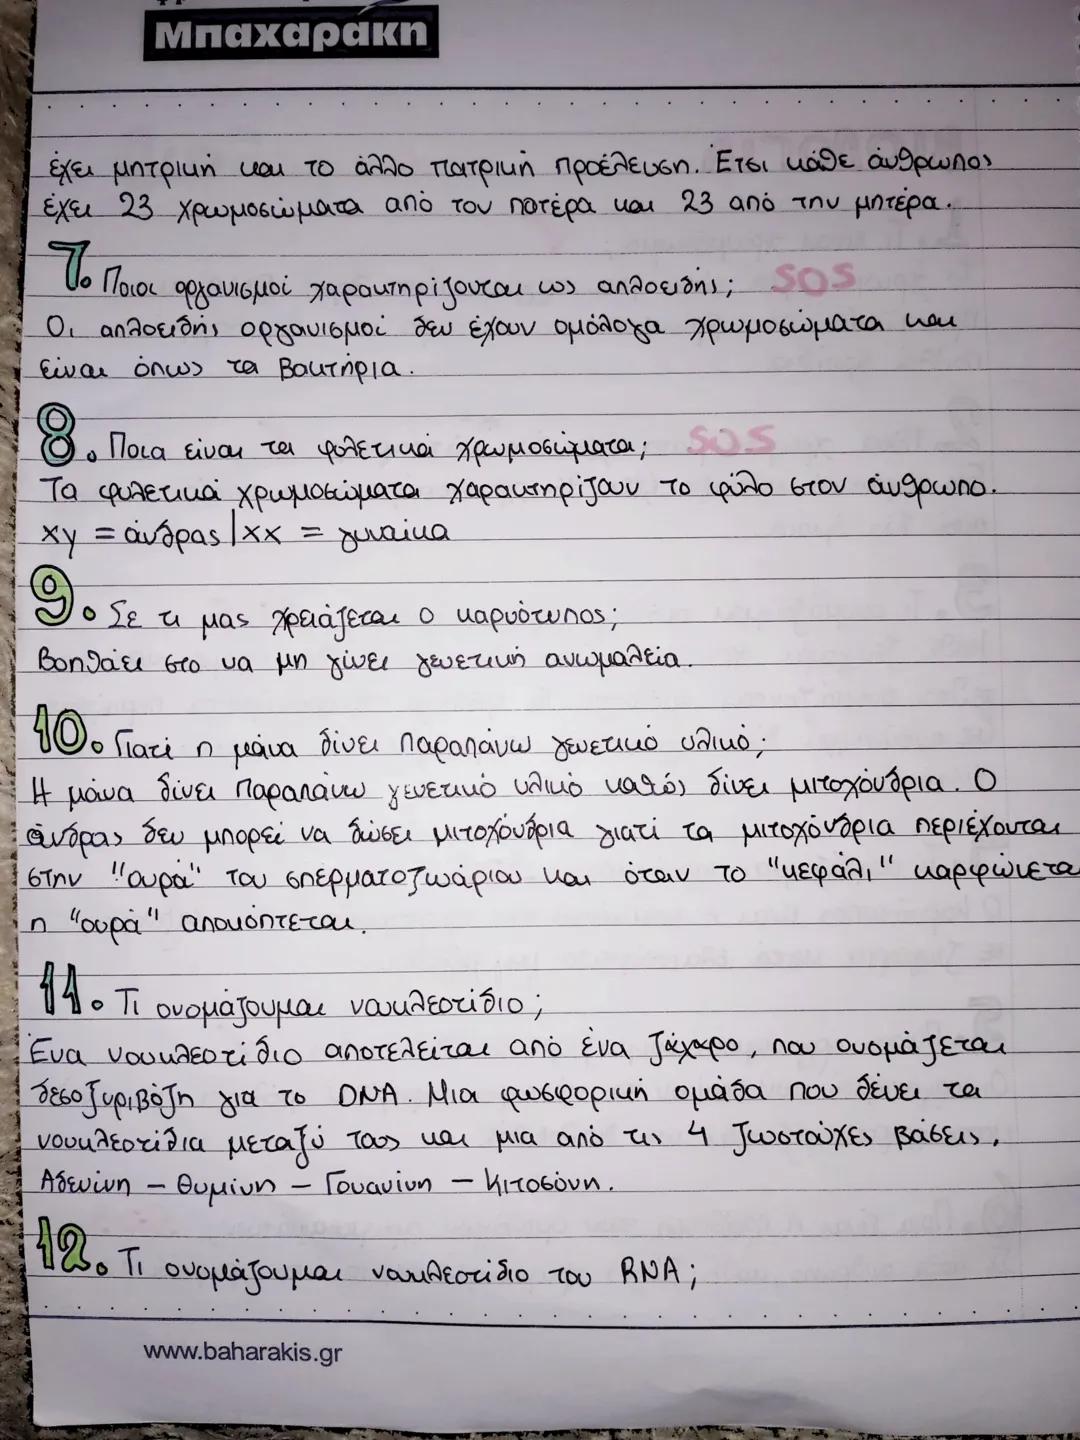 Μπαχαράκη
έχει μητρική και το άλλο πατρική προέλευση. Έτσι κάθε άνθρωπος
έχει 23 χρωμοσώματα από τον πατέρα και 23 από την μητέρα.
7. Ποιοι οργανισμοί χαρακτηρίζονται ως απλοειδής; SOS
Οι απλοειδής οργανισμοί δεν έχουν ομόλογα χρωμοσώματα και
είναι όπως τα βακτήρια.
8. Ποια είναι τα φυλετικά χρωμοσώματα; SOS
Τα φυλετικά χρωμοσώματα χαρακτηρίζουν το φύλο στον άνθρωπο.
xy = άνδρας | xx = γυναίκα
9. Σε τι μας χρειάζεται ο καρυότυπος;
Βοηθάει στο να μη γίνει γενετική ανωμαλεία.
10. Γιατί η μάνα δίνει παραπάνω γενετικό υλικό;
Η μάνα δίνει παραπάνω γενετικό υλικό καθώς δίνει μιτοχόνδρια. Ο
άνδρας δεν μπορεί να δώσει μιτοχόνδρια γιατί τα μιτοχόνδρια περιέχονται
στην "ουρά" του σπερματοζωάριου και όταν το "κεφάλι" καρφώνεται
η "ουρά" αποκόπτεται.
11. Τι ονομάζουμαι νουκλεοτίδιο;
Ένα νουκλεοτίδιο αποτελείται από ένα ζάχαρο, που ονομάζεται
δεσοξυριβόζη για το DNA. Μια φωσφορική ομάδα που δένει τα
νουκλεοτίδια μεταξύ τους και μια από τις 4 ζωοτούχες βάσεις.
Αδενίνη – Θυμίνη – Γουανίνη – Κιτοσόνη.
12. Τι ονομάζουμαι νουκλεοτίδιο του RNA;
www.baharakis.gr